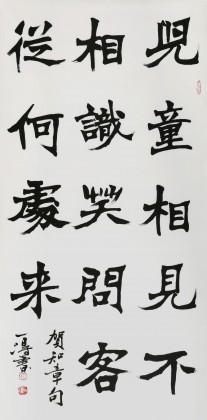 兒童相見不
相識笑問客
從何處来
賀知章句
一鴻書